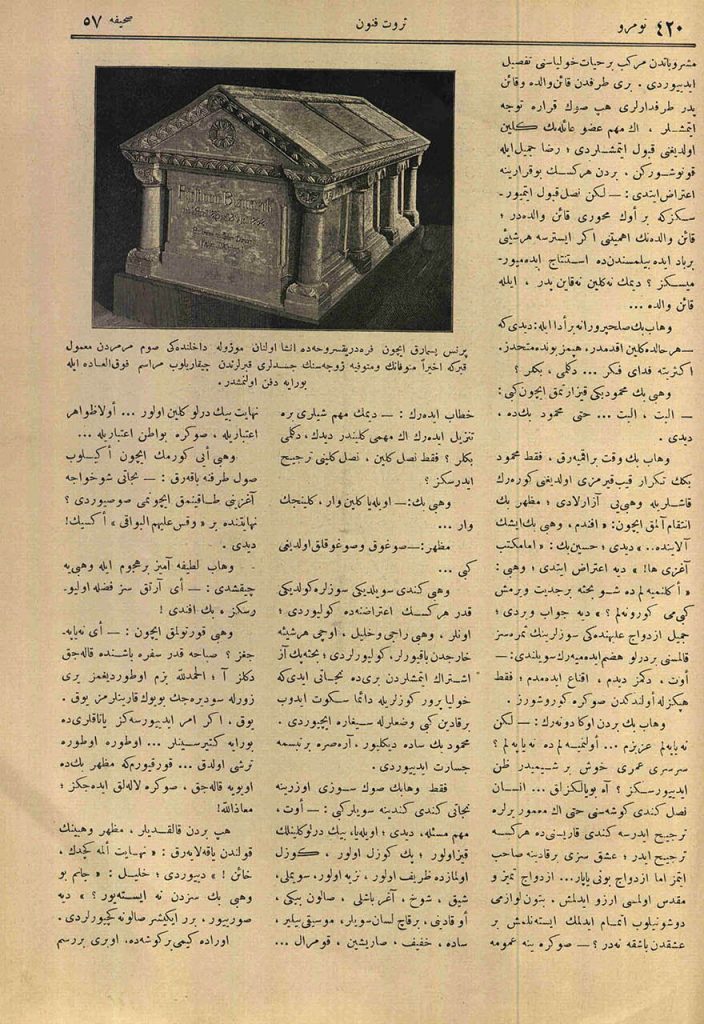 ٤٢٠ نومرو
ثروت فنون
صحیفه ٥٧
مشروباتدن مركب بر حیات خولیاسنی تفصیل
ایدییوردی . بری طرفدن قائن والده وقائن
پدر طرفدارلری هپ صوك قراره توجه
ایتمشلر ، اك مهم عضو عائله‌نك كلین
اولدیغنی قبول ایتمشلردی ؛ رضا جمیل ایله
قونوشوركن . بردن هركسك بوقرارینه
اعتراض ایتدی : — لكن نصل قبول ایتمیور-
سكزكه بر أوك محوری قائن والده‌در ؛
قائن والده‌نك اهمیتی اكر ایسترسه هرشیئی
برباد ایده بیلمسندن‌ده استنتاج ایده‌میور-
میسكز ؟ دیمك نه‌كلین نه‌قاین پدر ، ایلله
قائن والده ...
وهاب بك صلحپرورانه برأدا ایله : دیدی‌كه
— هرحالده كلین اقدمدر ، هپمز بونده متحدز.
اكثریته فدای فكر ... دكلمی ، بكلر ؟
وهبی بك محمود بكی قیزارتمق ایچون كبی :
— البت ، البت ... حتی محمود بك‌ده ،
دیدی .
وهاب بك وقت براقمیه‌رق ، فقط محمود
بكك تكرار قیپ‌قیرمزی اولدیغنی كوره‌رك
قاشلریله وهبی‌یی آزارلادی ؛ مظهر بك
انتقام آلمق ایچون : « افندم ، وهبی بك‌ایشك
آلاینده.. » دیدی ؛ حسین بك : « امامكتب
آغزی ها! » دیه اعتراض ایتدی ؛ وهبی :
« أكلنمیه‌لم ده شو بحثه بر جدیت ویرمش
كبی‌می كورونه‌لم ؟ » دیه جواب ویردی ؛
جمیل ازدواج علیهنده‌كی سوزلرینك ثمره‌سز
قالمسنی بردرلو هضم‌ایده‌میه‌رك سویلندی : —
أوت ، دكز دیدم ، اقناع ایده‌مدم ؛ فقط
هپكز له‌أولندكدن صوكره كوروشورز .
وهاب بك بردن اوكا دونه‌رك : — لكن
نه یاپه‌لم عزیزم ... أولنمیه‌لم ده نه یاپه‌لم ؟
سرسری عمری خوش بر شی‌میدر ظن
ایدییورسكز ؟ آه بویالكزلق ... انسان
نصل كندی كوشه‌سنی حتی اك معمور یرلره
ترجیح ایدرسه كندی قاریسنی‌ده هركسه
ترجیح ایدر ؛ عشق سزی برقادینه صاحب
ایتمز اما ازدواج بونی یاپار... ازدواج تمیز و
مقدس اولمسی آرزو ایدلمش . بتون لوازمی
دوشونیلوب اتمام ایدلمك ایسته‌نلمش بر
عشقدن باشقه نه‌در ؟ — صوكره ینه عمومه
پرنس بسمارق ایچون فره‌دریقسروحه‌ده انشا اولنان موزوله داخلنده‌كی صوم مرمردن معمول
قبركه اخیراً متوفانك ومتوفیه زوجه‌سنك جسدلری قبرلرندن چیقاریلوب مراسم فوق‌العاده ایله
بورایه دفن اولنمشدر .
خطاب ایده‌رك : — دیمك مهم شیلری بره
تنزیل ایده‌رك اك مهمی كلیندر دیدك، دكلمی
بكلر ؟ فقط نصل كلین ، نصل كلینی ترجیح
ایدرسكز ؟
وهبی بك : — اویله یا كلین وار ، كلینجك
وار ...
مظهر : — صوغوق و صوغوقلق اولدیغی
كبی ...
وهبی كندی سویلدیكی سوزلره كولدیكی
قدر هركسك اعتراضنه‌ده كولیوردی ؛
اونلر ، وهبی راجی وخلیل ، اوچی هرشیئه
خارجدن باقیورلر ، كولیورلردی ؛ بحثه پك آز
اشتراك ایتمشلردن بری‌ده نجاتی ایدی‌كه
خولیا پرور كوزلریله دائما سكوت ایدوب
برقادین كبی وضعلرله سیغاره ایچیوردی .
محمود بك ساده دیكلیور ، آره‌صره برتبسمه
جسارت ایدییوردی .
فقط وهابك صوك سوزی اوزرینه
نجاتی كندی كندینه سویلر كبی : — أوت ،
مهم مسئله ، دیدی ؛ اویله یا، بیك درلو كلینلك
قیز اولور ؛ پك كوزل اولور ، كوزل
اولمازده ظریف اولور ، نزیه اولور، سویملی،
شیق ، شوخ ، آغر باشلی ، صالون بیكی ،
أو قادینی ، برقاچ لسان‌سویلر، موسیقی‌بیلیر،
ساده ، خفیف ، صاریشین ، قومرال ...
نهایت بیك درلو كلین اولور ... أولا ظواهر
اعتباریله ، صوكره بواطن اعتباریله ...
وهبی أیی كورمك ایچون أكیلوب
صول طرفنه باقه‌رق : — نجاتی شوخواجه
آغزینی طاقینمق ایچونمی صوصیوردی ؟
نهایتنده بر « وقس علیهم البواقی » أكسیك!
دیدی .
وهاب لطیفه آمیز برهجوم ایله وهبی‌یه
چیقشدی : — أی آرتق سز فضله اولیو-
رسكز ، بك افندی !
وهبی قورتولمق ایچون : — أی نه‌یاپه-
جغز ؟ صباحه قدر سفره باشنده قاله‌جق
دكلز آ ؛ الحمدلله بزم اوطوردیغمز یری
زورله سودیره‌جك بویوك قاریئلرمز یوق .
یوق ، اكر امر ایدییورسه‌كز یاتاقلری‌ده
بورایه كتیرسینلر ... اوطوره اوطوره
ترشی اولدق ... قورقیورم‌كه مظهر بك‌ده
اویویه قاله‌جق ، صوكره لاله‌لق ایده‌جكز ؛
معاذالله!
هپ بردن قالقدیلر ، مظهر وهبینك
قولندن یاقه‌لایه‌رق : « نهایت ألمه كچدك ،
خائن ! » دییوردی ؛ خلیل : « جانم بو
وهبی بك سزدن نه ایسته‌یور ؟ » دیه
صورییور ، برر ایكیشر صالونه كچییورلردی .
اوراده كیمی بركوشه‌ده، اوبری بررسم